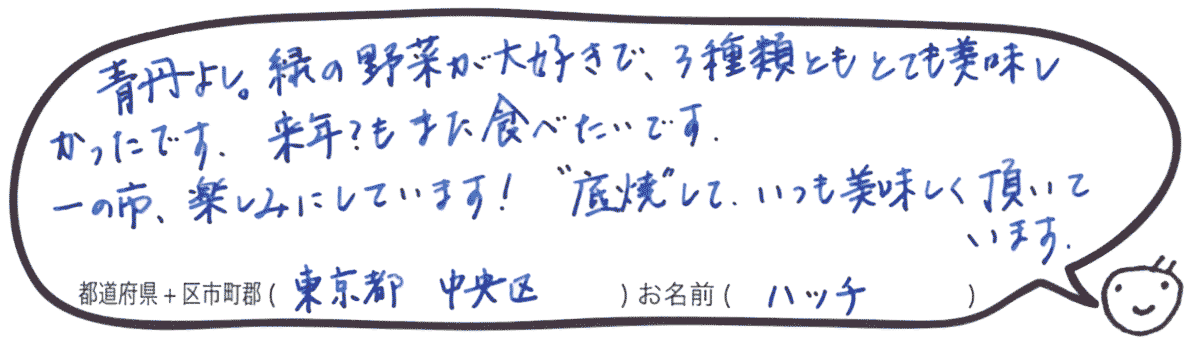 青丹よし。緑の野菜が大好きで、3種類ともとても美味し
かったです. 来年?もまた食べたいです.
一の市、楽しみにしています! "底焼"して. いつも美味しく頂いて
います.
都道府県+区市町郡(東京都 中央区)お名前(ハッチ)